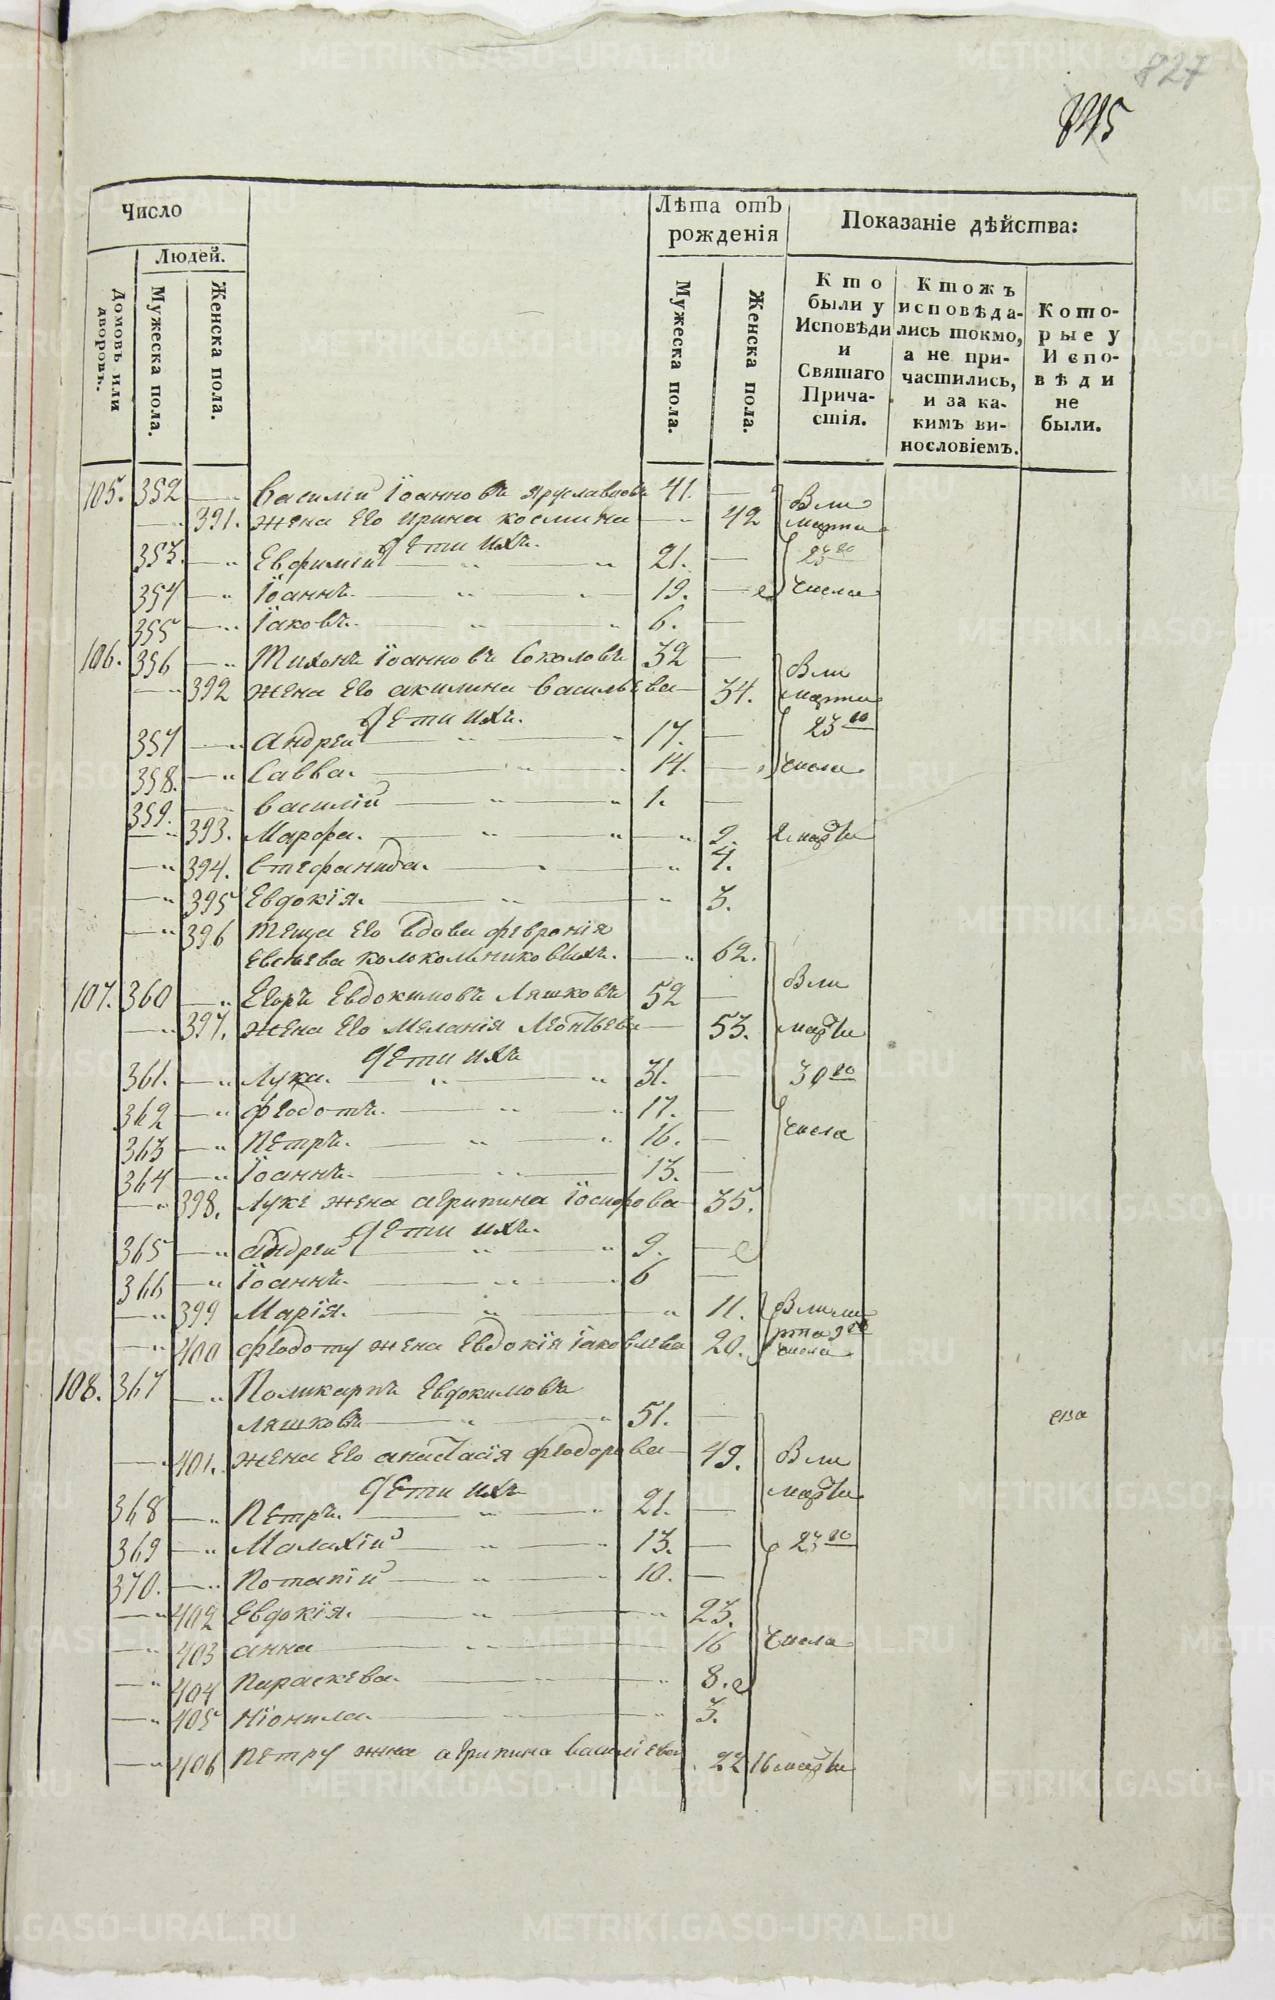 827
845
Число
Лѣта отъ рожденія
Показаніе дѣйства:
Людей.
Домовъ или дворовъ.
Мужеска пола.
Женска пола.
Мужеска пола.
Женска пола.
Кто были у Исповѣди и Святаго Причастія.
Ктожъ исповѣдались токмо, а не причастились, и за какимъ винословіемъ.
Которые у Исповѣди не были.
105. 352 Василій Іоанновъ Ярославцовъ 41. Были
391. жена его Ирина космина 42 марта
дети ихъ.
353. Евфимій 21. 23го
354 Іоаннъ. 19. числа
355 Іаковъ. 6.
106. 356 Тихонъ Іоанновъ Соколовъ 32 Были
392 жена его акилина васильева 34. марта
дети ихъ.
357 андрей 17. 23го
358. Савва. 14. числа.
359. василій 1.
393. Марфа. 9. марта
394. Стефанида. 4.
395 Евдокія. 3.
396 теща его вдова феврония
Евсиева колокольниковыхъ. 62.
107. 360 Егоръ Евдокимовъ Ляшковъ 52 Были
397. жена его Меланія Леонтьева 53. марта
дети ихъ
361. Лука. 31. 30го
362 феодотъ. 17.
363 Петръ. 16. числа
364 Іоаннъ. 13.
398. Луке жена агрипина Іосифова 35.
дети ихъ.
365 андрей 9.
366 Іоаннъ. 6
399 Марія. 11. Были ма
400 феодоту жена Евдокія Іаковлева 20. рта 9го числа
108. 367 Поликарпъ Евдокимовъ
Ляшковъ 51.
401. жена его анастасія феодорова 49. Были
дети ихъ марта
368 Петръ. 21.
369 Малахій 13. 23го
370. Потапій 10.
402 Евдокія. 23.
403 анна 16 числа
404 Параскева. 8.
405 Ніонила 3.
406 Петру жена агрипина василіева 22 16 марта